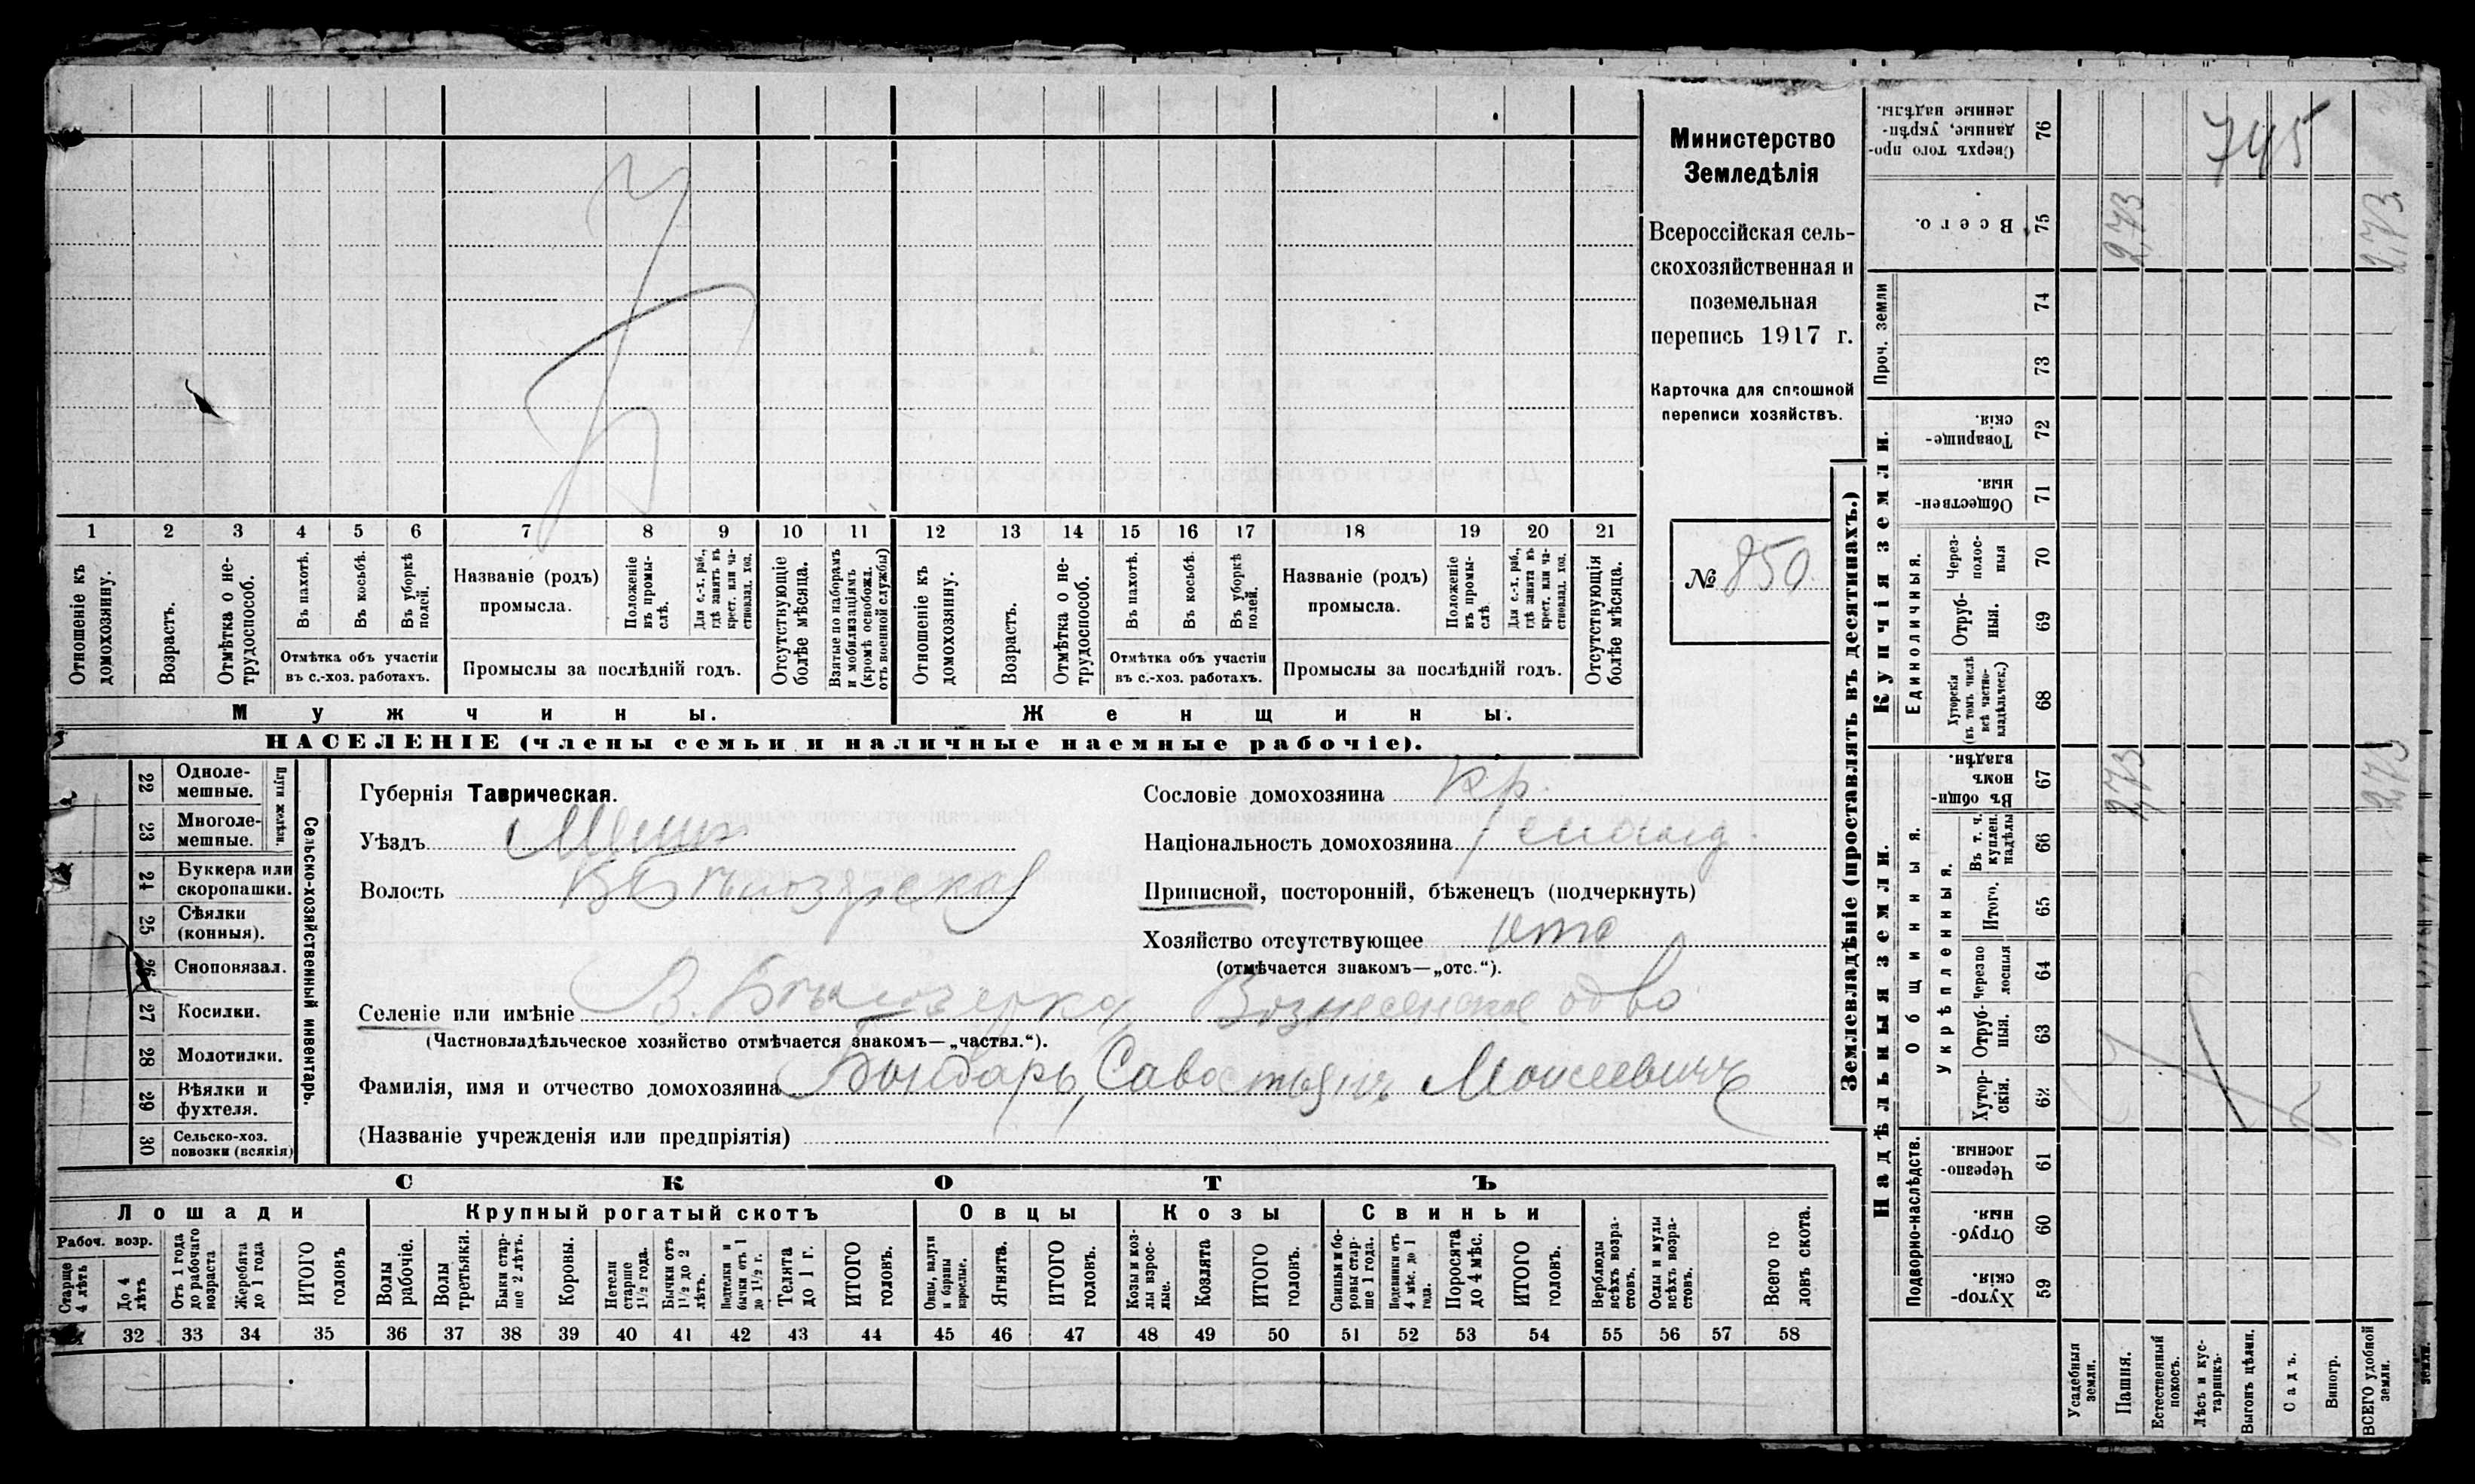 Министерство
Земледѣлія
Всероссійская сель-
скохозяйственная и
поземельная
перепись 1917 г.
Карточка для сплошной
переписи хозяйствъ.
№ 850
1 2 3 4 5 6 7 8 9 10 11 12 13 14 15 16 17 18 19 20 21
Отношеніе къ домохозяину.
Возрастъ.
Отмѣтка о не-трудоспособ.
Въ пахотѣ.
Въ косьбѣ.
Въ уборкѣ полей.
Отмѣтка объ участіи
въ с.-хоз. работахъ.
Названіе (родъ)
промысла.
Положеніе въ промы-слѣ.
Для с.-х. раб., гдѣ занятъ въ крест. или ча-стновлад. хоз.
Промыслы за послѣдній годъ.
Отсутствующіе болѣе мѣсяца.
Взятые по наборамъ и мобилизаціямъ (кромѣ освобожд. отъ военной службы)
Отношеніе къ домохозяину.
Возрастъ.
Отмѣтка о не-трудоспособ.
Въ пахотѣ.
Въ косьбѣ.
Въ уборкѣ полей.
Отмѣтка объ участіи
въ с.-хоз. работахъ.
Названіе (родъ)
промысла.
Положеніе въ промы-слѣ.
Для с.-х. раб., гдѣ занята въ крест. или ча-стновлад. хоз.
Промыслы за послѣдній годъ.
Отсутствующія болѣе мѣсяца.
Мужчины.
Женщины.
НАСЕЛЕНІЕ (члены семьи и наличные наемные рабочіе).
22 Одноле-мешные.
23 Многоле-мешные.
Плуги желѣзн.
24 Буккера или скоропашки.
25 Сѣялки (конныя).
26 Сноповязал.
27 Косилки.
28 Молотилки.
29 Вѣялки и фухтеля.
30 Сельско-хоз. повозки (всякія)
Сельско-хозяйственный инвентарь.
Губернія Таврическая.
Уѣздъ Мелит
Волость ВБѣлозерская
Сословіе домохозяина кр.
Національность домохозяина
Приписной, посторонній, бѣженецъ (подчеркнуть)
Хозяйство отсутствующее отс
(отмѣчается знакомъ—„отс.“).
Селеніе или имѣніе В. Бѣлозерка Вознесенское об-во
(Частновладѣльческое хозяйство отмѣчается знакомъ—„частвл.“).
Фамилія, имя и отчество домохозяина Бондарь, Савостьянъ Моисеевичъ
(Названіе учрежденія или предпріятія)
СКОТЪ
Лошади
Крупный рогатый скотъ
Овцы
Козы
Свиньи
Рабоч. возр.
Старше 4 лѣтъ
До 4 лѣтъ
Отъ 1 года до рабочаго возраста
Жеребята до 1 года
ИТОГО головъ
Волы рабочіе.
Волы третьяки.
Быки стар-ше 2 лѣтъ.
Коровы.
Нетели старше 1½ года.
Бычки отъ 1½ до 2 лѣтъ.
Подтелки и бычки отъ 1 до 1½ г.
Телята до 1 г.
ИТОГО головъ.
Овцы, валухи и бараны взрослые.
Ягнята.
ИТОГО головъ.
Козы и коз-лы взрос-лые.
Козлята
ИТОГО головъ.
Свиньи и бо-ровы стар-ше 1 года.
Подсвинки отъ 4 мѣс. до 1 года.
Поросята до 4 мѣс.
ИТОГО головъ.
Верблюды всѣхъ возра-стовъ.
Ослы и мулы всѣхъ возра-стовъ.
Всего го ловъ скота.
32 33 34 35 36 37 38 39 40 41 42 43 44 45 46 47 48 49 50 51 52 53 54 55 56 57 58
Землевладѣніе (проставлять въ десятинахъ.)
Сверхъ того про-данные, укрѣп-ленные надѣлы. 76
745
Всего. 75
2,73
2,73
Проч. земли
74
73
Купчія земли.
Товарище-скія. 72
Обществен-ныя. 71
Единоличныя.
Через-полос-ныя 70
Отруб-ныя. 69
Хуторскія (въ томъ числѣ всѣ частно-владѣльческ.) 68
Надѣльныя земли.
Общинныя.
Въ общи-номъ владѣн. 67
2,73
2,73
Укрѣпленныя.
Въ т. ч. куплен. надѣлы 66
Итого. 65
Черезпо лосныя 64
Отруб-ныя. 63
Хутор-скія. 62
Подворно-наслѣдств.
Черезпо-лосныя. 61
Отруб-ныя. 60
Хутор-скія. 59
Усадебныя земли.
Пашня.
Естественный покосъ.
Лѣсъ и кус-тарникъ.
Выгонъ цѣлин.
Садъ.
Виногр.
ВСЕГО удобной земли.